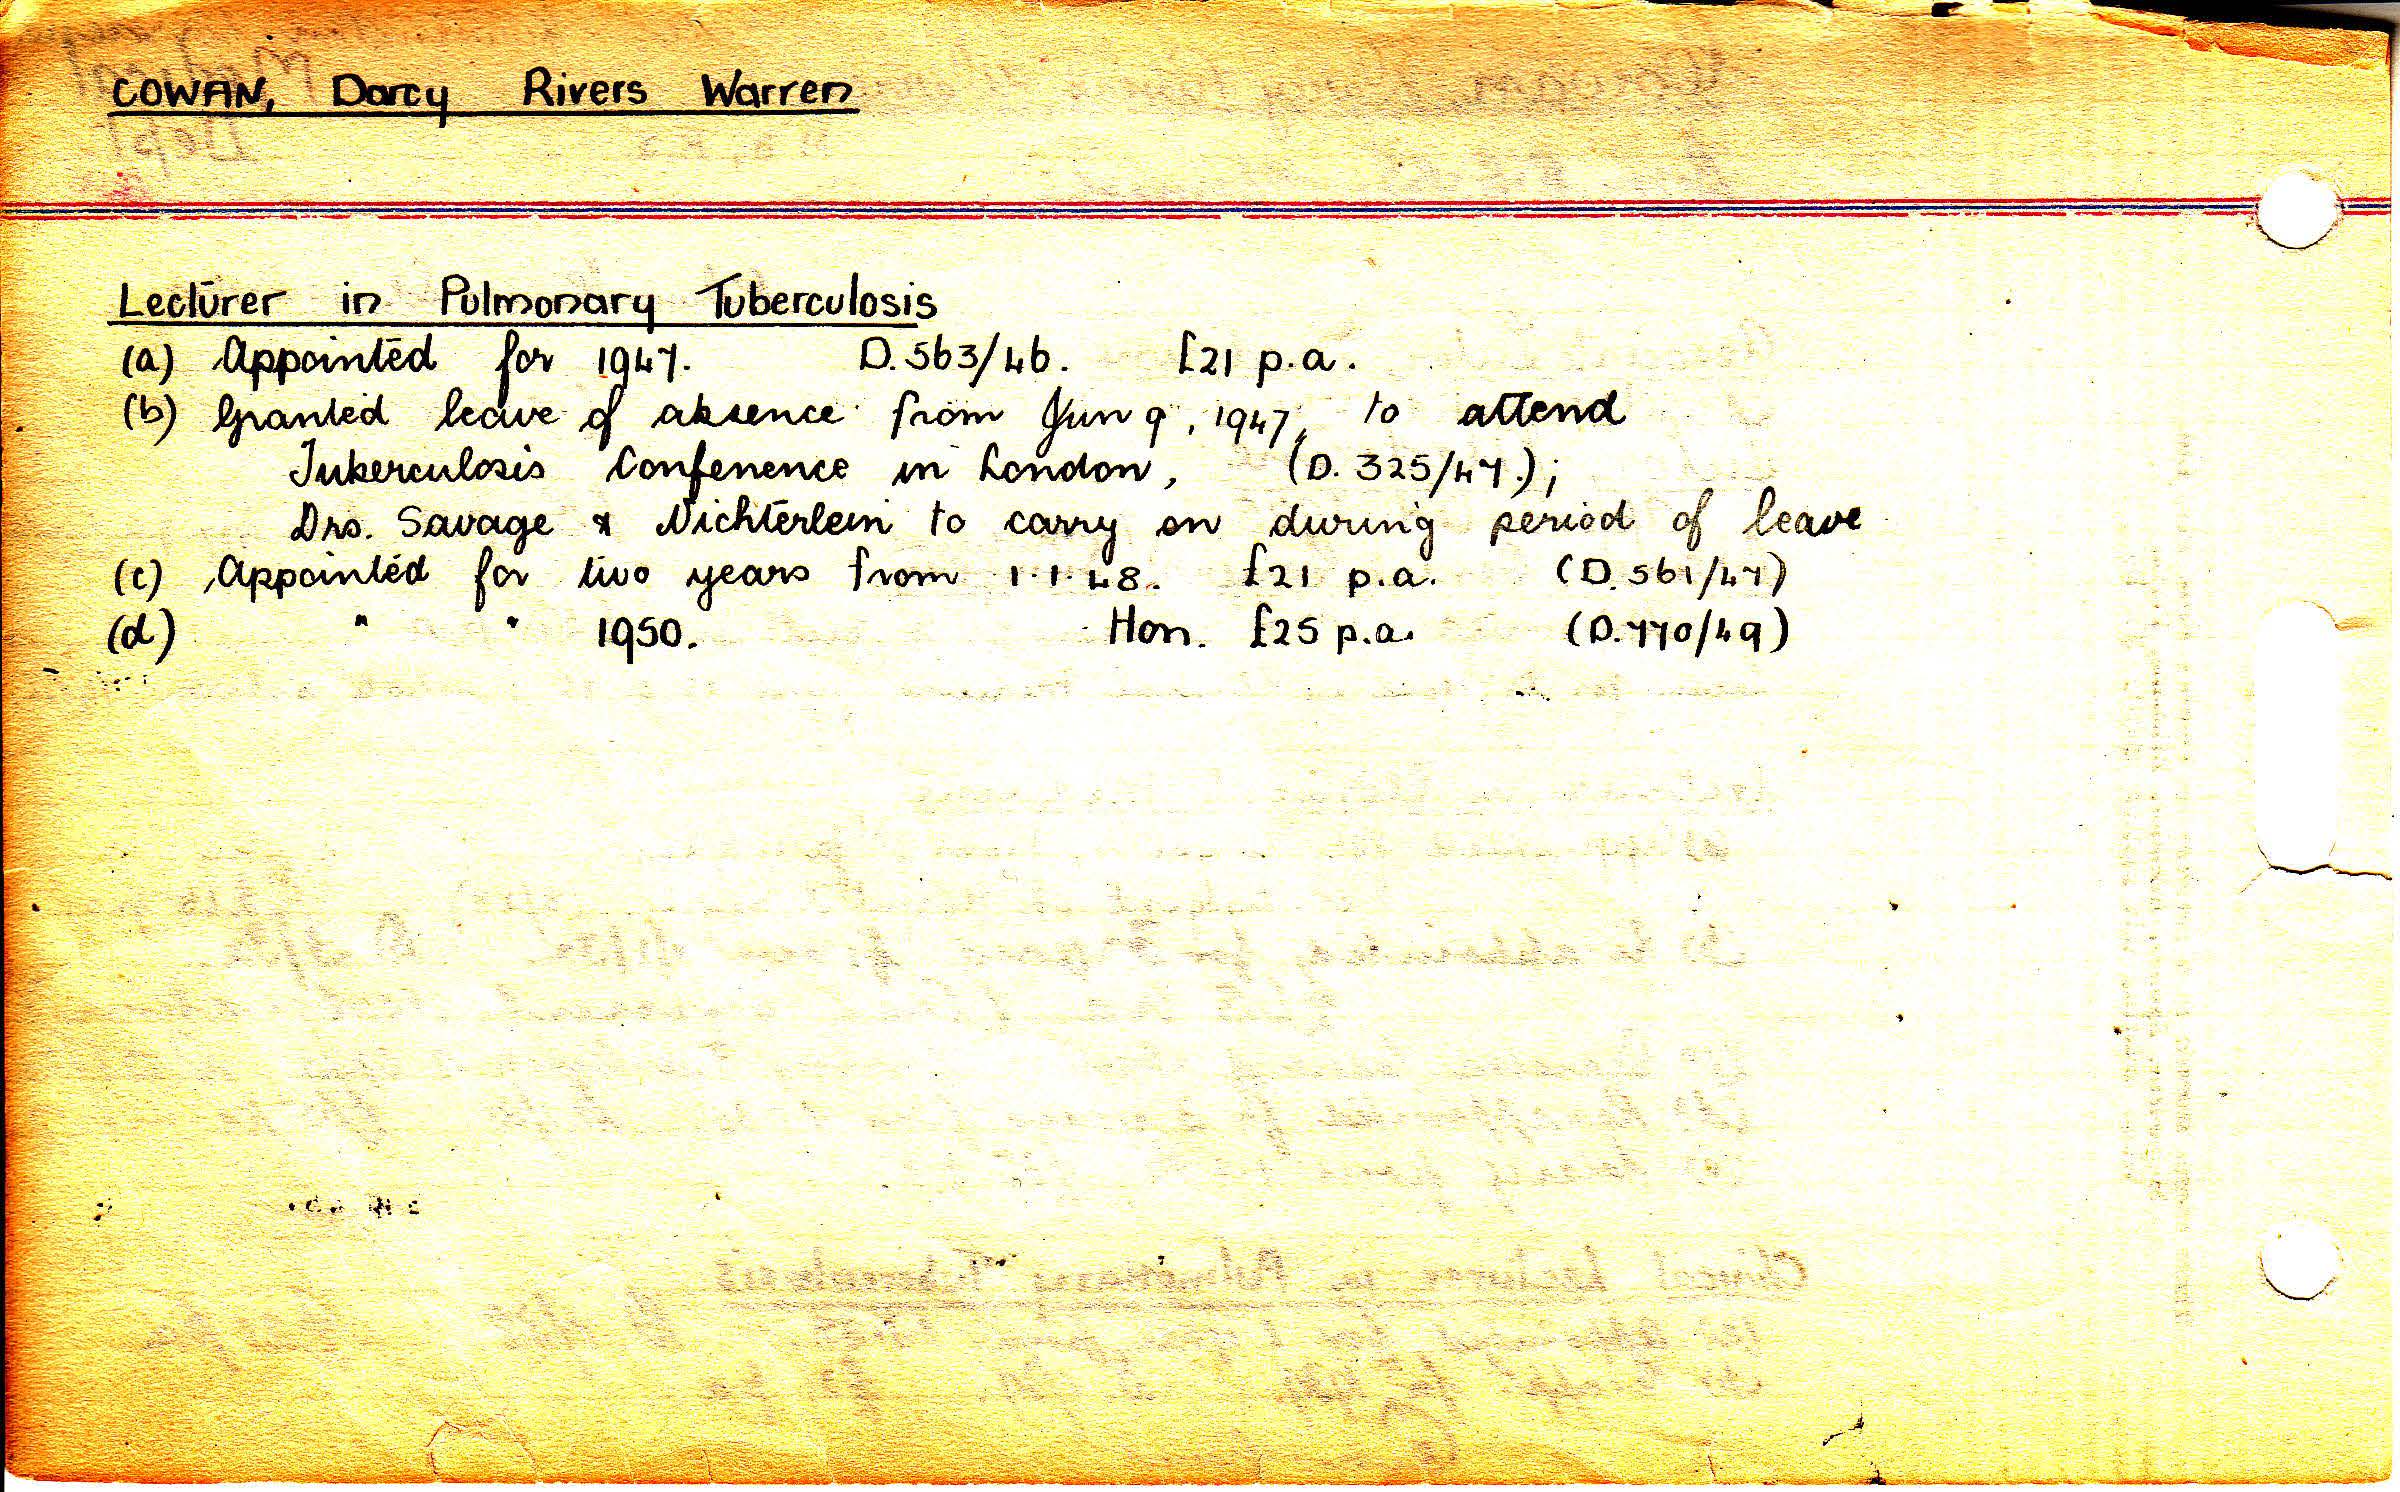 COWAN, Darcy Rivers Warren
Lecturer in Pulmonary Tuberculosis
(a) Appointed for 1947. D.563/46. £21 p.a.
(b) Granted leave of absence from Jun 9, 1947, to attend
Tuberculosis Conference in London, (D. 325/47.);
Drs. Savage & Nichterlein to carry on during period of leave
(c) Appointed for two years from 1.1.48. £21 p.a. (D.561/47)
(d) " " 1950. Hon. £25 p.a. (D.770/49)